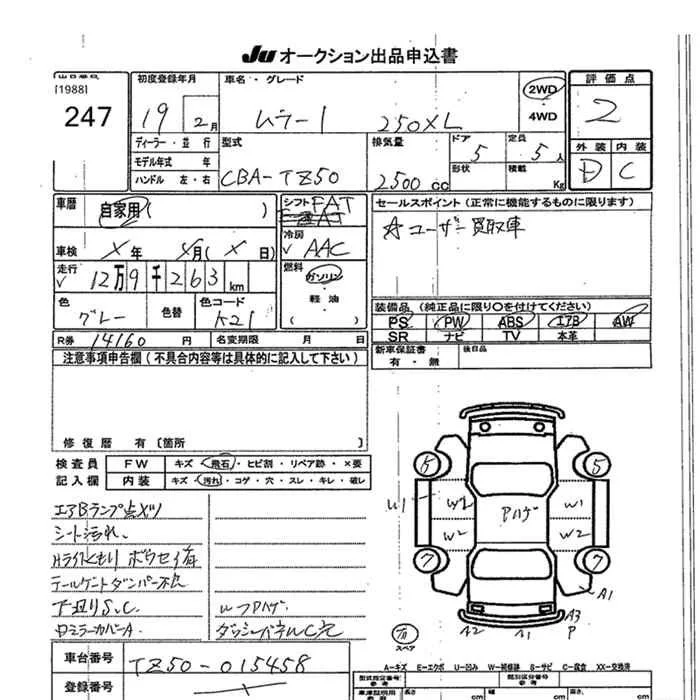 JU オークション出品申込書
[1988]
247
初度登録年月
19 2月
ディーラー・並行
モデル年式 年
ハンドル 左・右
車名・グレード
ムラーノ 250XL
2WD
4WD
評価点
2
外装 内装
D C
型式
CBA-TZ50
排気量
2500 cc
ドア
5
形状
定員
5人
積載
Kg
車歴
自家用( )
車検 X 年 X月( X 日)
走行
√ 12万9千263 km
色
グレー
色替
色コード
K21
シフト FAT
冷房
√ AAC
燃料
ガソリン
軽油
( )
セールスポイント(正常に機能するものに限ります)
☆ユーザー買取車
装備品(純正品に限り○を付けてください)
PS PW ABS エアB AW
SR ナビ TV 本革
新車保証書
有・無
後日品
R券 14160 円 名変期限 月 日
注意事項申告欄(不具合内容等は具体的に記入して下さい)
修復歴 有〔箇所 〕
検査員 FW キズ・飛石・ヒビ割・リペア跡・×要
記入欄 内装 キズ・汚れ・コゲ・穴・スレ・キレ・破レ
エアBランプ点灯
シート汚れ.
Hライトくもり ボウセイ有
テールゲートダンパー不良
下廻りS.C.
ロミラーカバーA.
ルーフPハゲ.
ダッシュパネルC穴
6 5
U1 W2 Pハゲ W1
W2 W2
7 7
A1
A2 A1 A3
P
スペア
A-キズ E-エクボ U-凹み W-補修跡 S-サビ C-腐食 XX-交換済
車台番号 TZ50-015458
登録番号
型式指定番号 類別区分番号
車庫証明用 長さ cm 幅 cm 高さ cm
参考